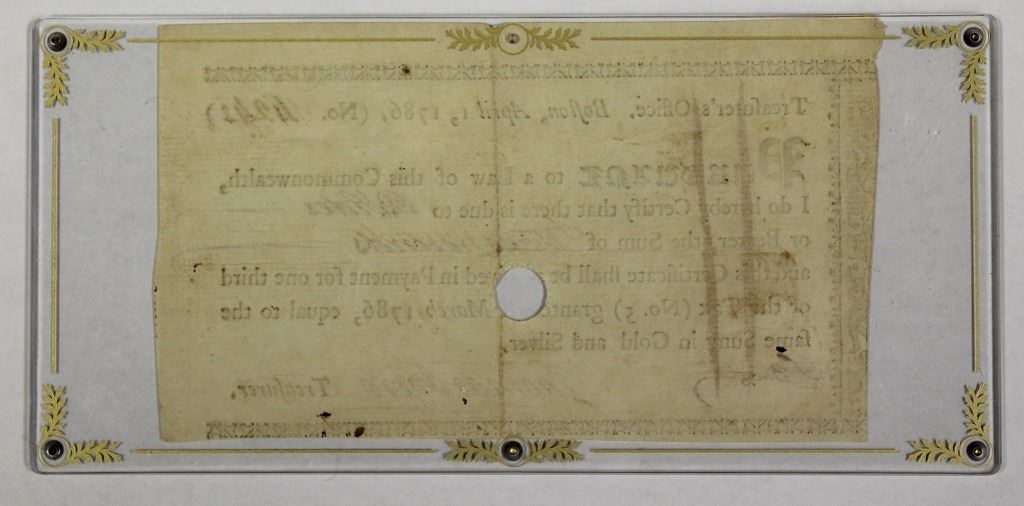 Treaſurer's Office, Boſton, April 1, 1786. (No.
PURSUANT to a Law of this Commonwealth,
I do hereby Certify that there is due to
or Bearer, the Sum of
and this Certificate ſhall be received in Payment for one third
of the Tax (No. 5) granted March 1786, equal to the
ſame Sum in Gold and Silver.
Treaſurer.